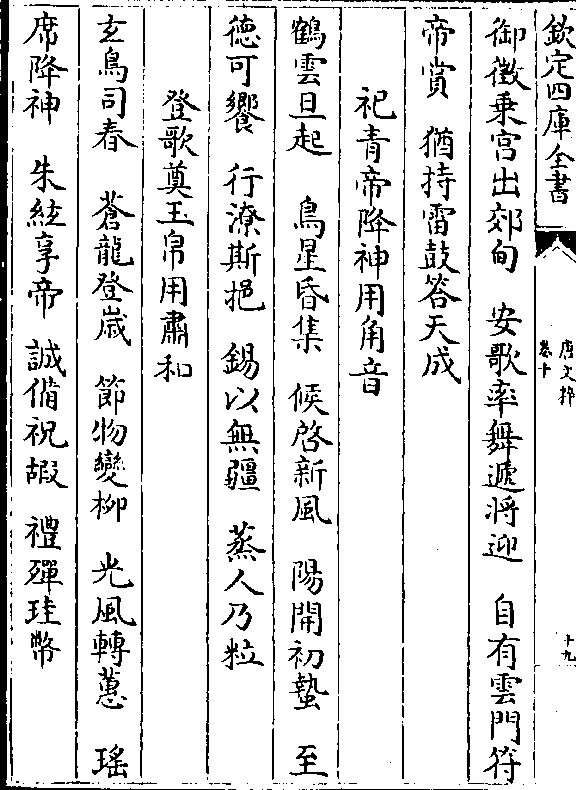 欽定四庫全書
唐文粹
卷十
十九
御徵乗宫出郊甸 安歌率舞遞将迎 自有雲門符
帝賞 猶持雷鼓答天成
祀青帝降神用角音
鶴雲旦起 鳥星昏集 候啓新風 陽開初蟄 至
德可饗 行潦斯挹 錫以無疆 蒸人乃粒
登歌奠玉帛用肅和
玄鳥司春 蒼龍登嵗 節物變柳 光風轉蕙 瑶
席降神 朱絃享帝 誠俻祝嘏 禮殫珪幣